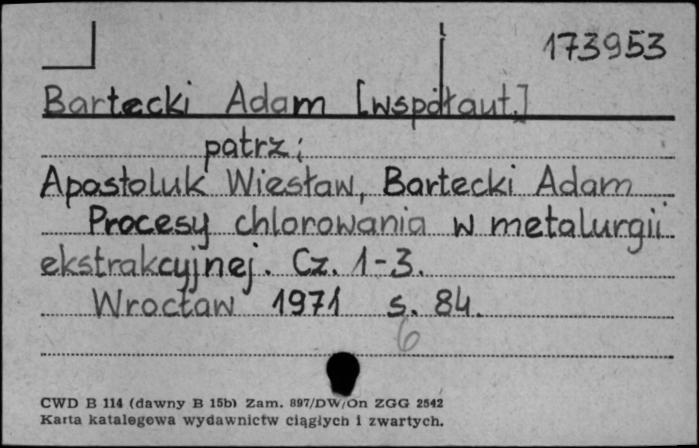 173953
Bartecki Adam [współaut.]
patrz:
Apostoluk Wiesław, Bartecki Adam
Procesy chlorowania w metalurgii
ekstrakcyjnej. Cz. 1-3.
Wrocław 1971 s. 84.
6
CWD B 114 (dawny B 15b) Zam. 897/DW/On ZGG 2542
Karta katalogowa wydawnictw ciągłych i zwartych.